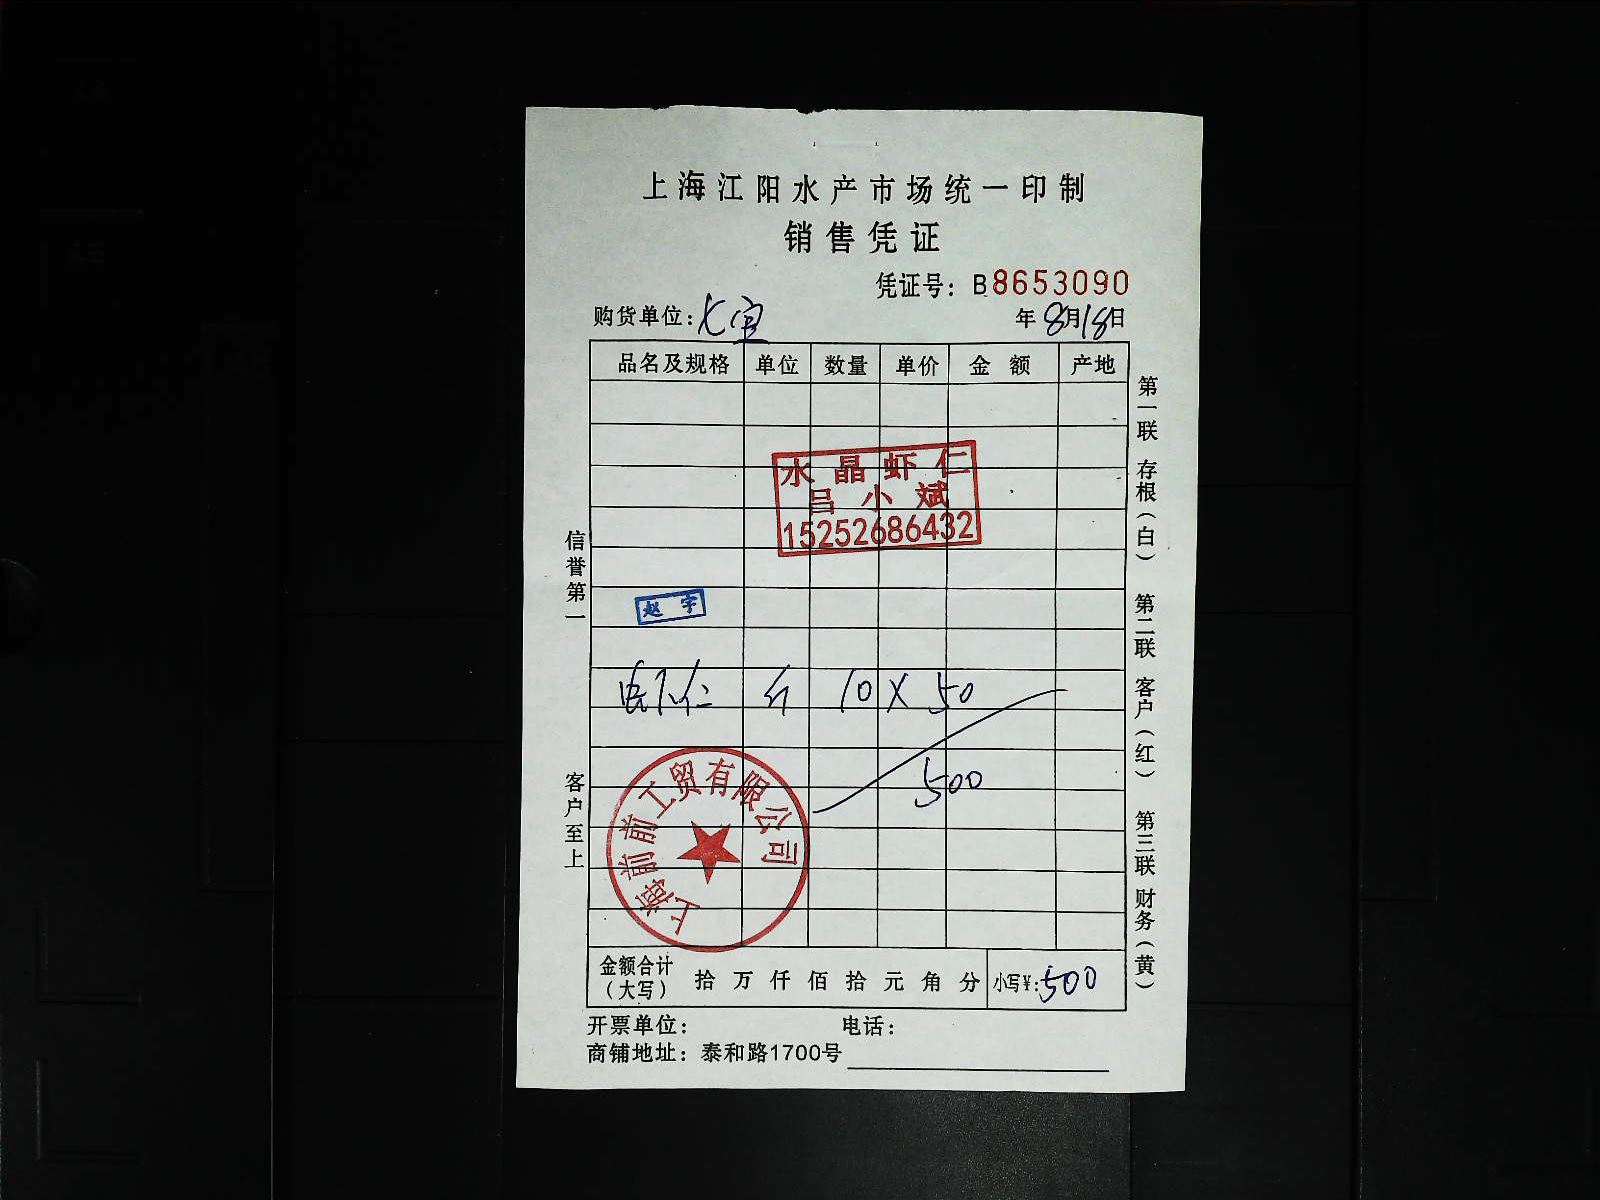 上海江阳水产市场统一印制
销售凭证
凭证号：B8653090
购货单位：七宝 年8月18日
品名及规格 单位 数量 单价 金额 产地
水晶虾仁
吕小斌
15252686432
赵宇
虾仁 斤 10 X 50
500
上海前前工贸有限公司
金额合计（大写） 拾万仟佰拾元角分 小写¥：500
开票单位： 电话：
商铺地址：泰和路1700号
信誉第一 客户至上
第一联 存根（白） 第二联 客户（红） 第三联 财务（黄）